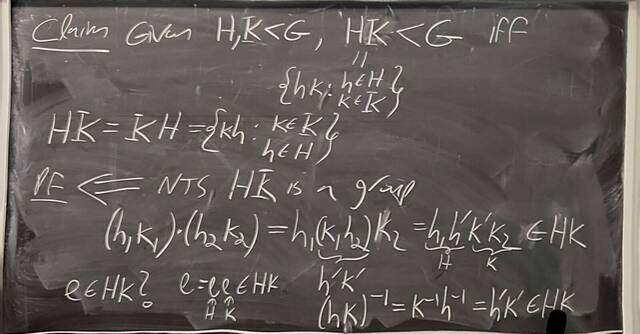 Claim Given H,K<G, HK<G iff
॥
{hk: h∈H
k∈K}
HK=KH={kh: k∈K
h∈H}
PF ⇐ NTS HK is a group
(h₁k₁)·(h₂k₂)=h₁(k₁h₂)k₂=h₁h'k'k₂ ∈HK
h'k' H K
e∈HK? e=ee∈HK
H K
(hk)⁻¹=k⁻¹h⁻¹=h'k'∈HK